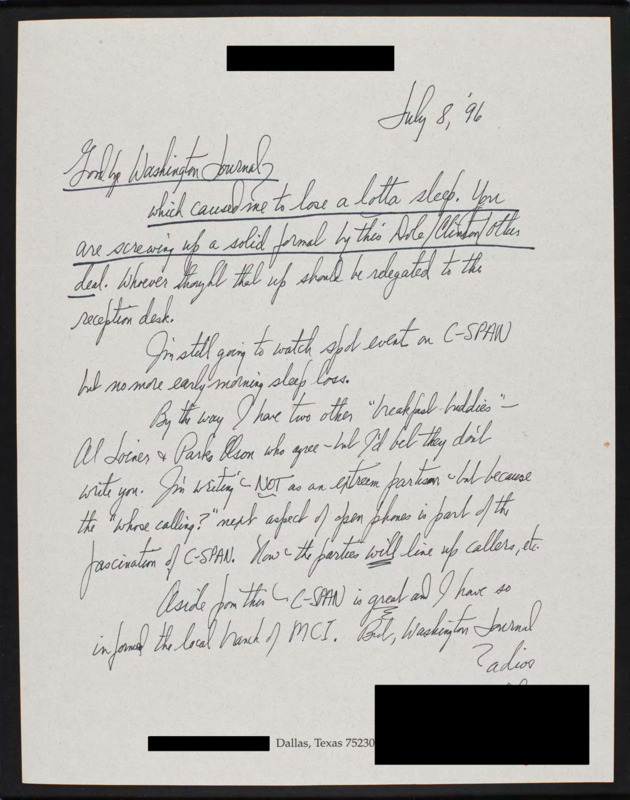 July 8, '96
Goodbye Washington Journal,
which caused me to lose a lotta sleep. You
are screwing up a solid format by this Dole/Clinton/other
deal. Whoever thought that up should be relegated to the
reception desk.
I'm still going to watch spot event on C-SPAN
but no more early morning sleep loss.
By the way I have two other "breakfast buddies" –
Al Joiner & Parks Olson who agree – but I'd bet they don't
write you. I'm writing – NOT as an extreem partisan – but because
the "whose calling?" next aspect of open phones is part of the
fascination of C-SPAN. Now – the parties will line up callers, etc.
Aside from this – C-SPAN is great and I have so
informed the local branch of MCI. But, Washington Journal
adios
Dallas, Texas 75230